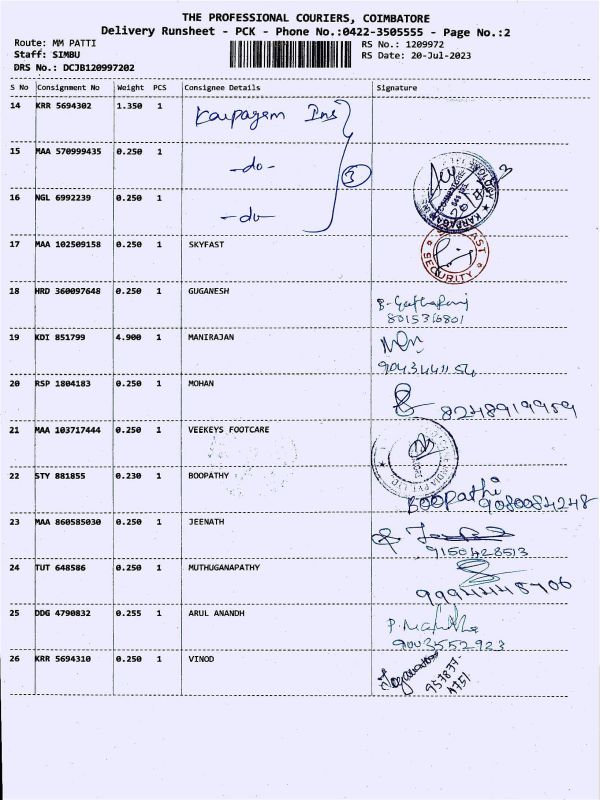 THE PROFESSIONAL COURIERS, COIMBATORE
Delivery Runsheet - PCK - Phone No.:0422-3505555 - Page No.:2
Route: MM PATTI
Staff: SIMBU
DRS No.: DCJB120997202
RS No.: 1209972
RS Date: 20-Jul-2023
S No Consignment No Weight PCS Consignee Details Signature
14 KRR 5694302 1.350 1 Karpagam Ins
15 MAA 570999435 0.250 1 -do-
3
16 NGL 6992239 0.250 1 -do-
17 MAA 102509158 0.250 1 SKYFAST
SECURITY
18 HRD 360097648 0.250 1 GUGANESH
8015316801
19 KDI 851799 4.900 1 MANIRAJAN
9043441154
20 RSP 1804183 0.250 1 MOHAN
8248919959
21 MAA 103717444 0.250 1 VEEKEYS FOOTCARE
22 STY 881855 0.230 1 BOOPATHY
Boopathi
9080084248
23 MAA 860585030 0.250 1 JEENATH
9150428513
24 TUT 648586 0.250 1 MUTHUGANAPATHY
25 DDG 4790832 0.255 1 ARUL ANANDH
9003552923
26 KRR 5694310 0.250 1 VINOD